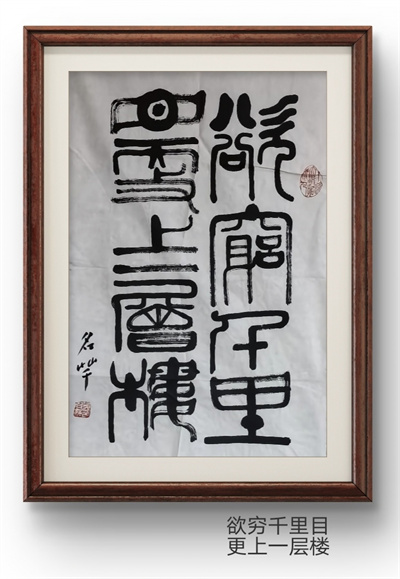 欲窮千里
目更上一層樓
名
欲穷千里目
更上一层楼